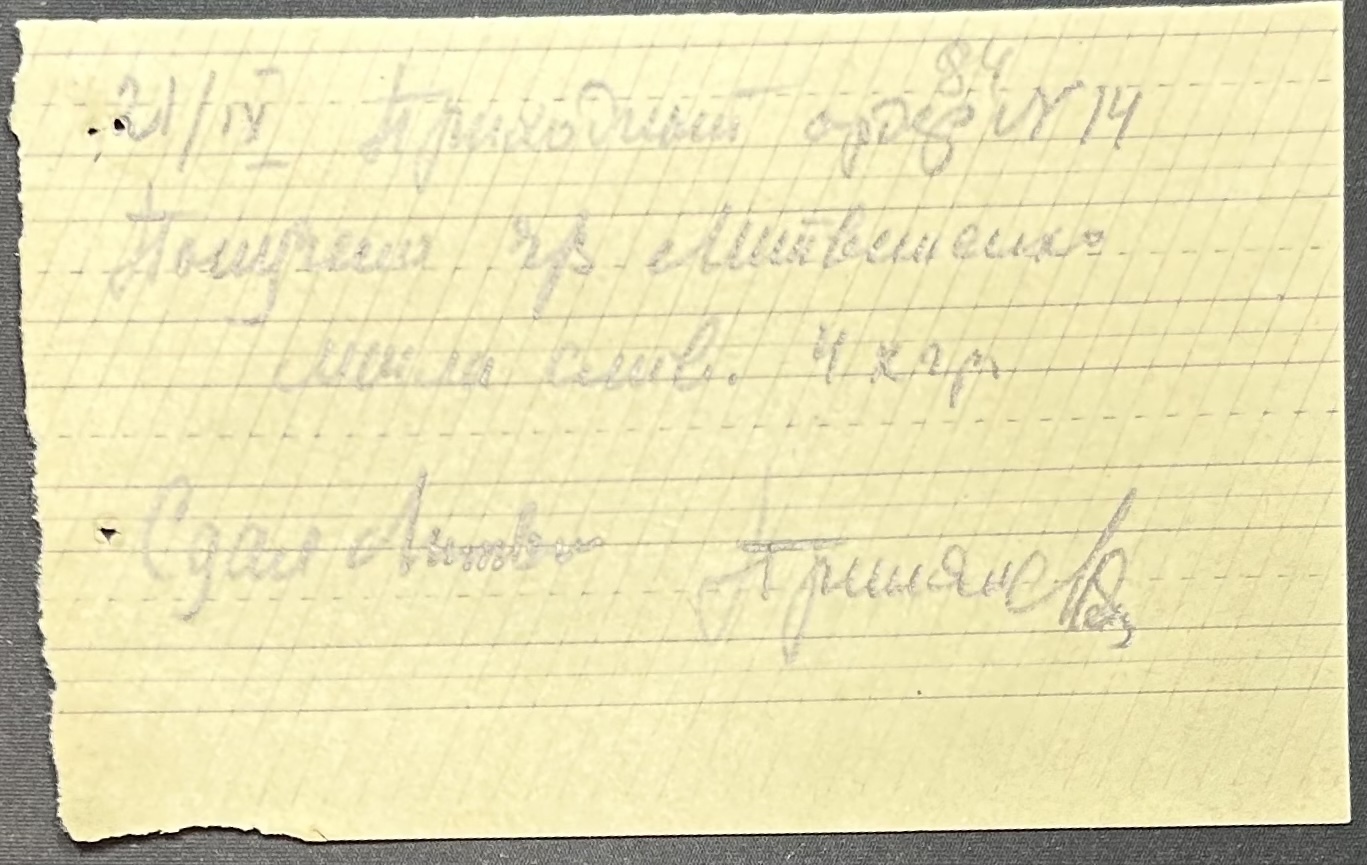 84
21/IV Приходный ордер N 14
Получено чрз Литвиненко
мыла слив. 4 кгр
Сдал Литви Принял